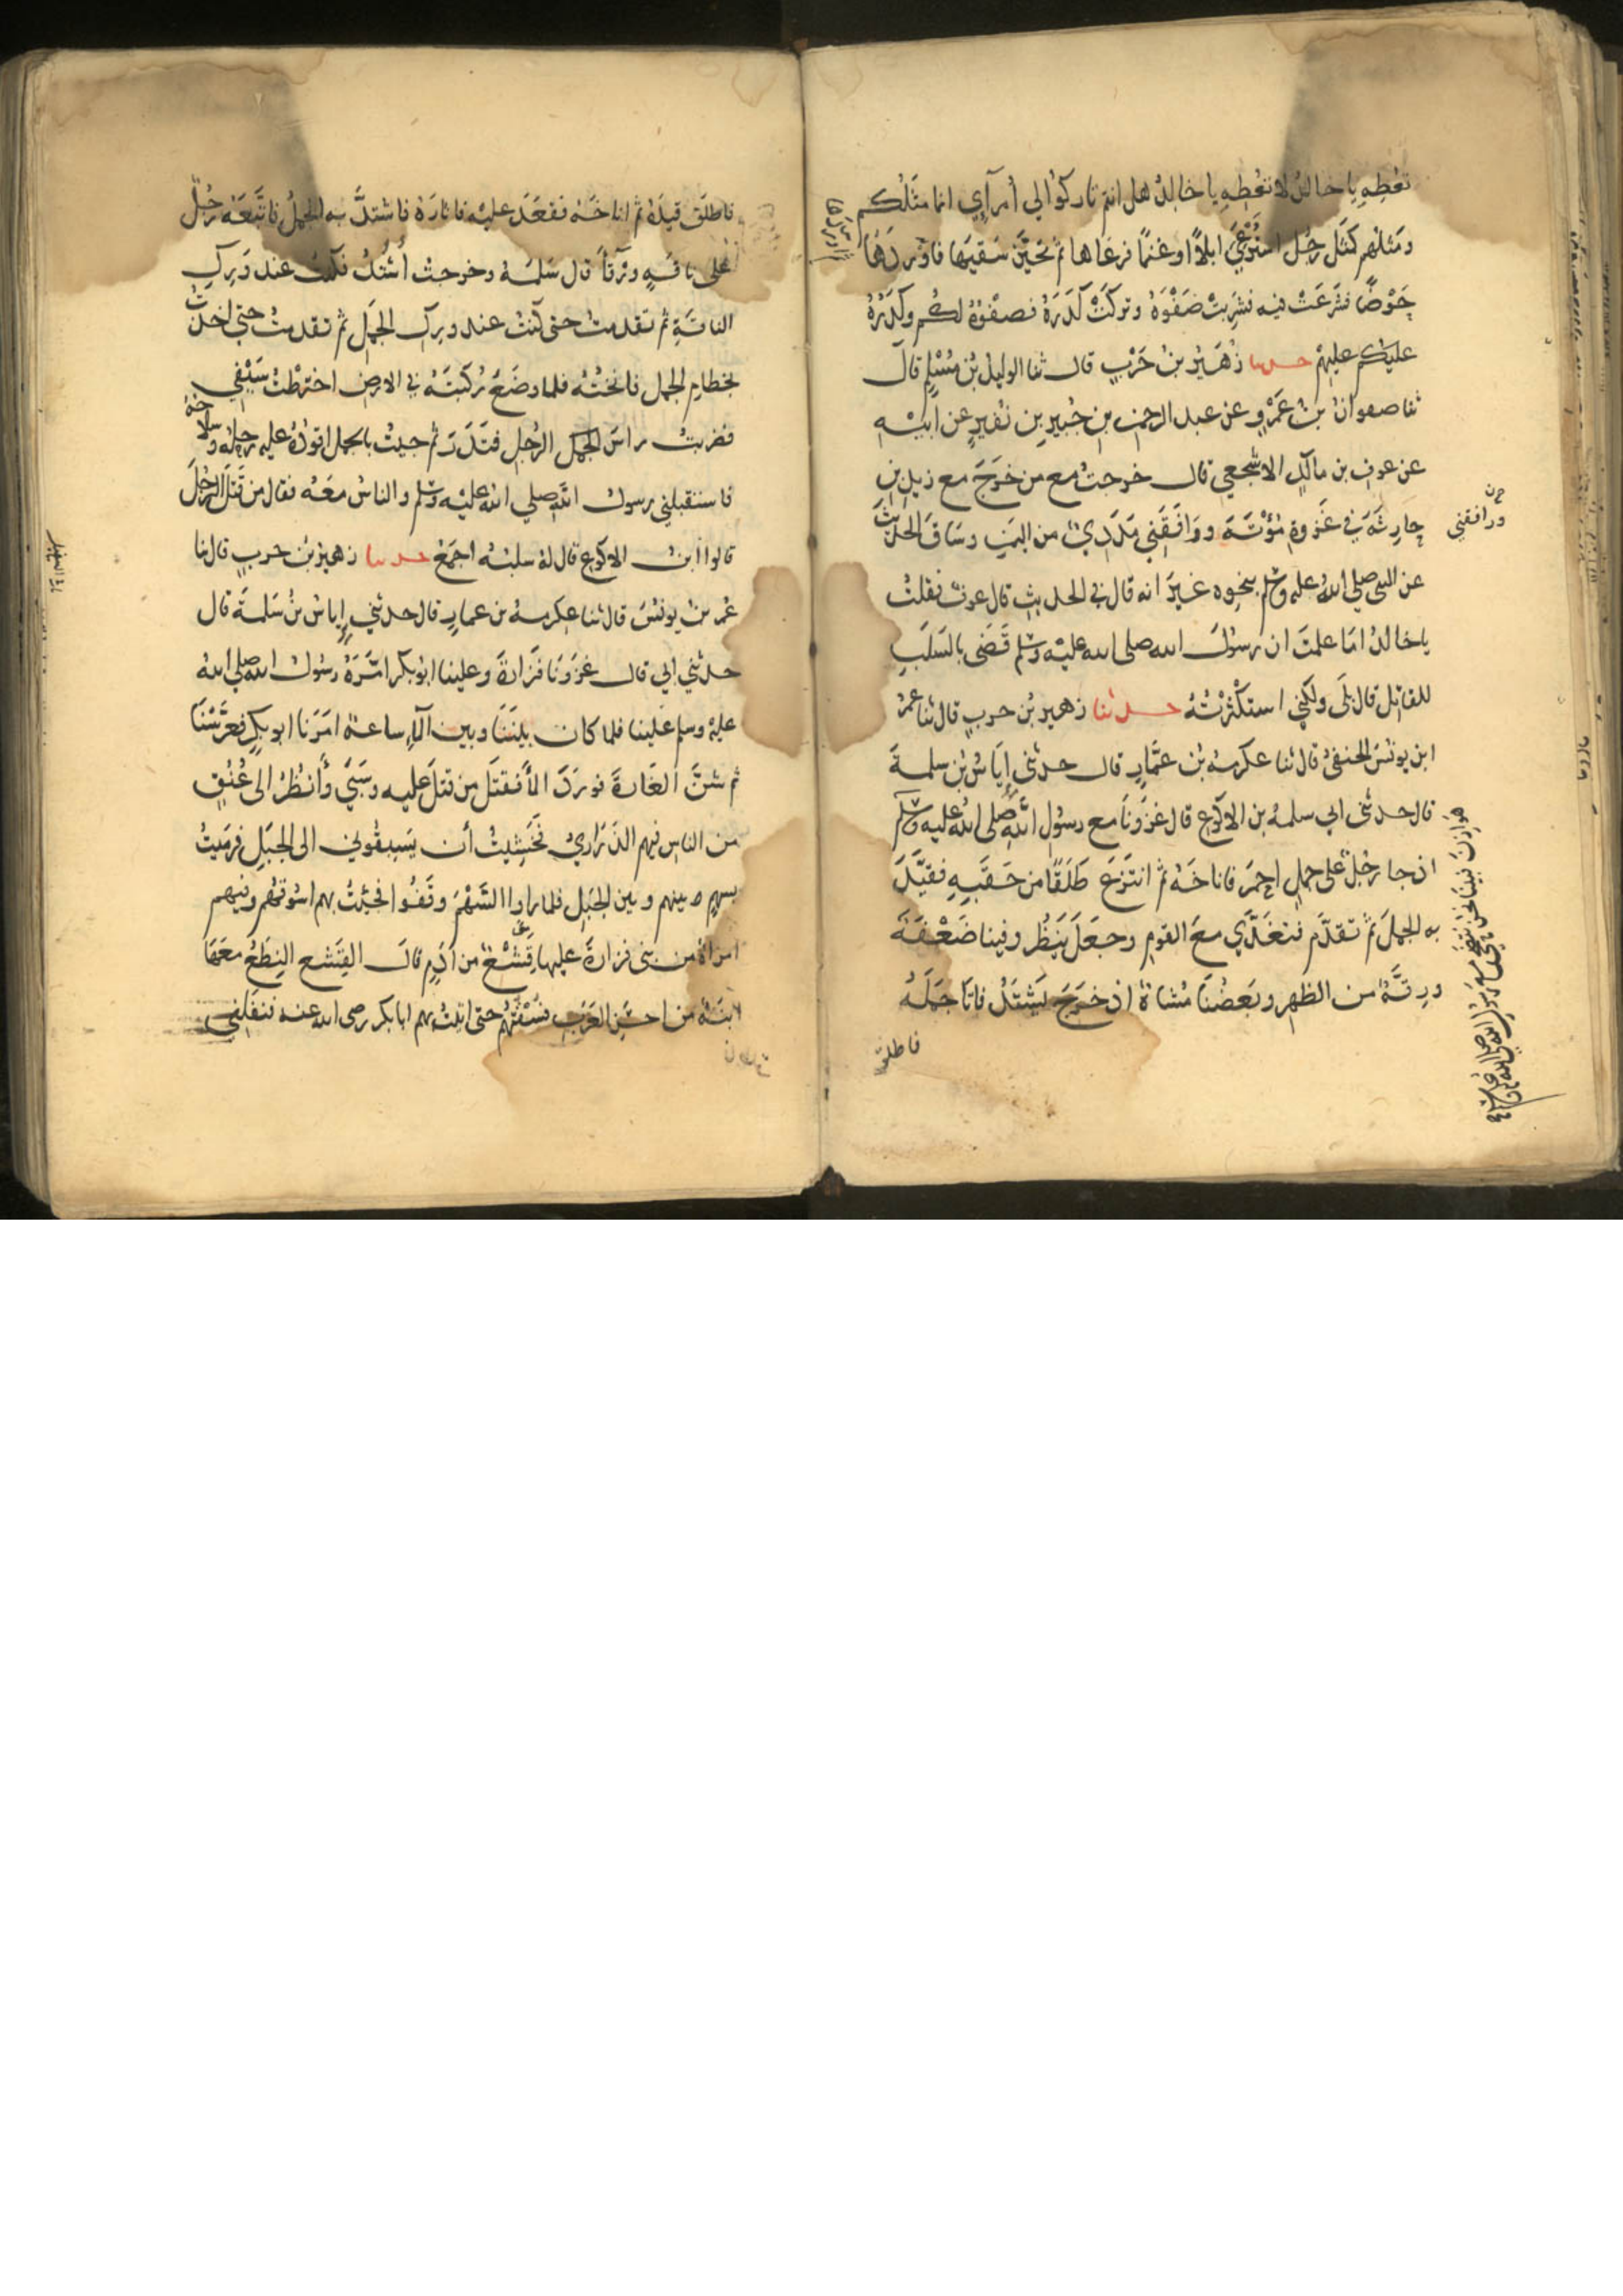 تعطه يا خالد لا تعطه يا خالد هل انتم تاركوا لي أمرآي انما مثلكم
ومثلهم كمثل رجل استرعي ابلا او غنما فرعاها ثم تحين سقيها فاوردها
حوضا فشرعت فيه فشربت صفوه وتركت كدره فصفوه لكم وكدره
عليكم عليهم حدثنا زهير بن حرب قال ثنا الوليد بن مسلم قال
ثنا صفوان بن عمرو عن عبد الرحمن بن جبير بن نفير عن ابيه
عن عوف بن مالك الاشجعي قال خرجت مع من خرج مع زيد بن
حارثة في غزوة مؤتة ووافقني مددي من اليمن وساق الحديث
ورافقني
عن النبي صلى الله عليه وسلم بنحوه غير انه قال في الحديث قال عوف فقلت
يا خالد اما علمت ان رسول الله صلى الله عليه وسلم قضى بالسلب
للقاتل قال بلى ولكني استكثرته حدثنا زهير بن حرب قال ثنا عمر
ابن يونس الحنفي قال ثنا عكرمة بن عمار قال حدثني إياس بن سلمة
قال حدثني ابي سلمة بن الاكوع قال غزونا مع رسول الله صلى الله عليه وسلم
هوازن فبينا نحن نتضحى مع رسول الله صلى الله عليه وسلم
اذ جا رجل على جمل احمر فاناخه ثم انتزع طلقا من حقبه فقيد
به الجمل ثم تقدم فتغدي مع القوم وجعل ينظر وفينا ضعفة
ورقة من الظهر وبعضنا مشاة اذ خرج يشتد فاتا جمله
فاطلق
فاطلق قيده ثم اناخه فقعد عليه فاثاره فاشتد به الجمل فاتبعه رجل
على ناقة ورقا قال سلمة وخرجت أشتد فكنت عند ورك
الناقة ثم تقدمت حتى كنت عند ورك الجمل ثم تقدمت حتى اخذت
بخطام الجمل فانخته فلما وضع ركبته في الارض اخترطت سيفي
فضربت راس الجمل الرجل فندر ثم جيت بالجمل اقوده عليه رحله وسلاحه
فاستقبلني رسول الله صلي الله عليه وسلم والناس معه فقال من قتل الرجل
قالوا ابن الاكوع قال له سلبه اجمع حدثنا زهير بن حرب قال نا
عمر بن يونس قال ثنا عكرمة بن عمار قال حدثني إياس بن سلمة قال
حدثني ابي قال غزونا فزارة وعلينا ابو بكر امره رسول الله صلى الله
عليه وسلم علينا فلما كان بيننا وبين الماء ساعة امرنا ابو بكر فعرسنا
ثم شن الغارة فورد الما فقتل من قتل عليه وسبي وأنظر الى عنق
من الناس فيهم الذراري فخشيت أن يسبقوني الى الجبل فرميت
بسهم بينهم وبين الجبل فلما راوا السهم وقفوا فجئت بهم اسوقهم وفيهم
امراة من بني فزارة عليها قشع من ادم قال القشع النطع معها
ابنة من احسن العرب فسقتهم حتى اتيت بهم ابا بكر رضي الله عنه فنفلني